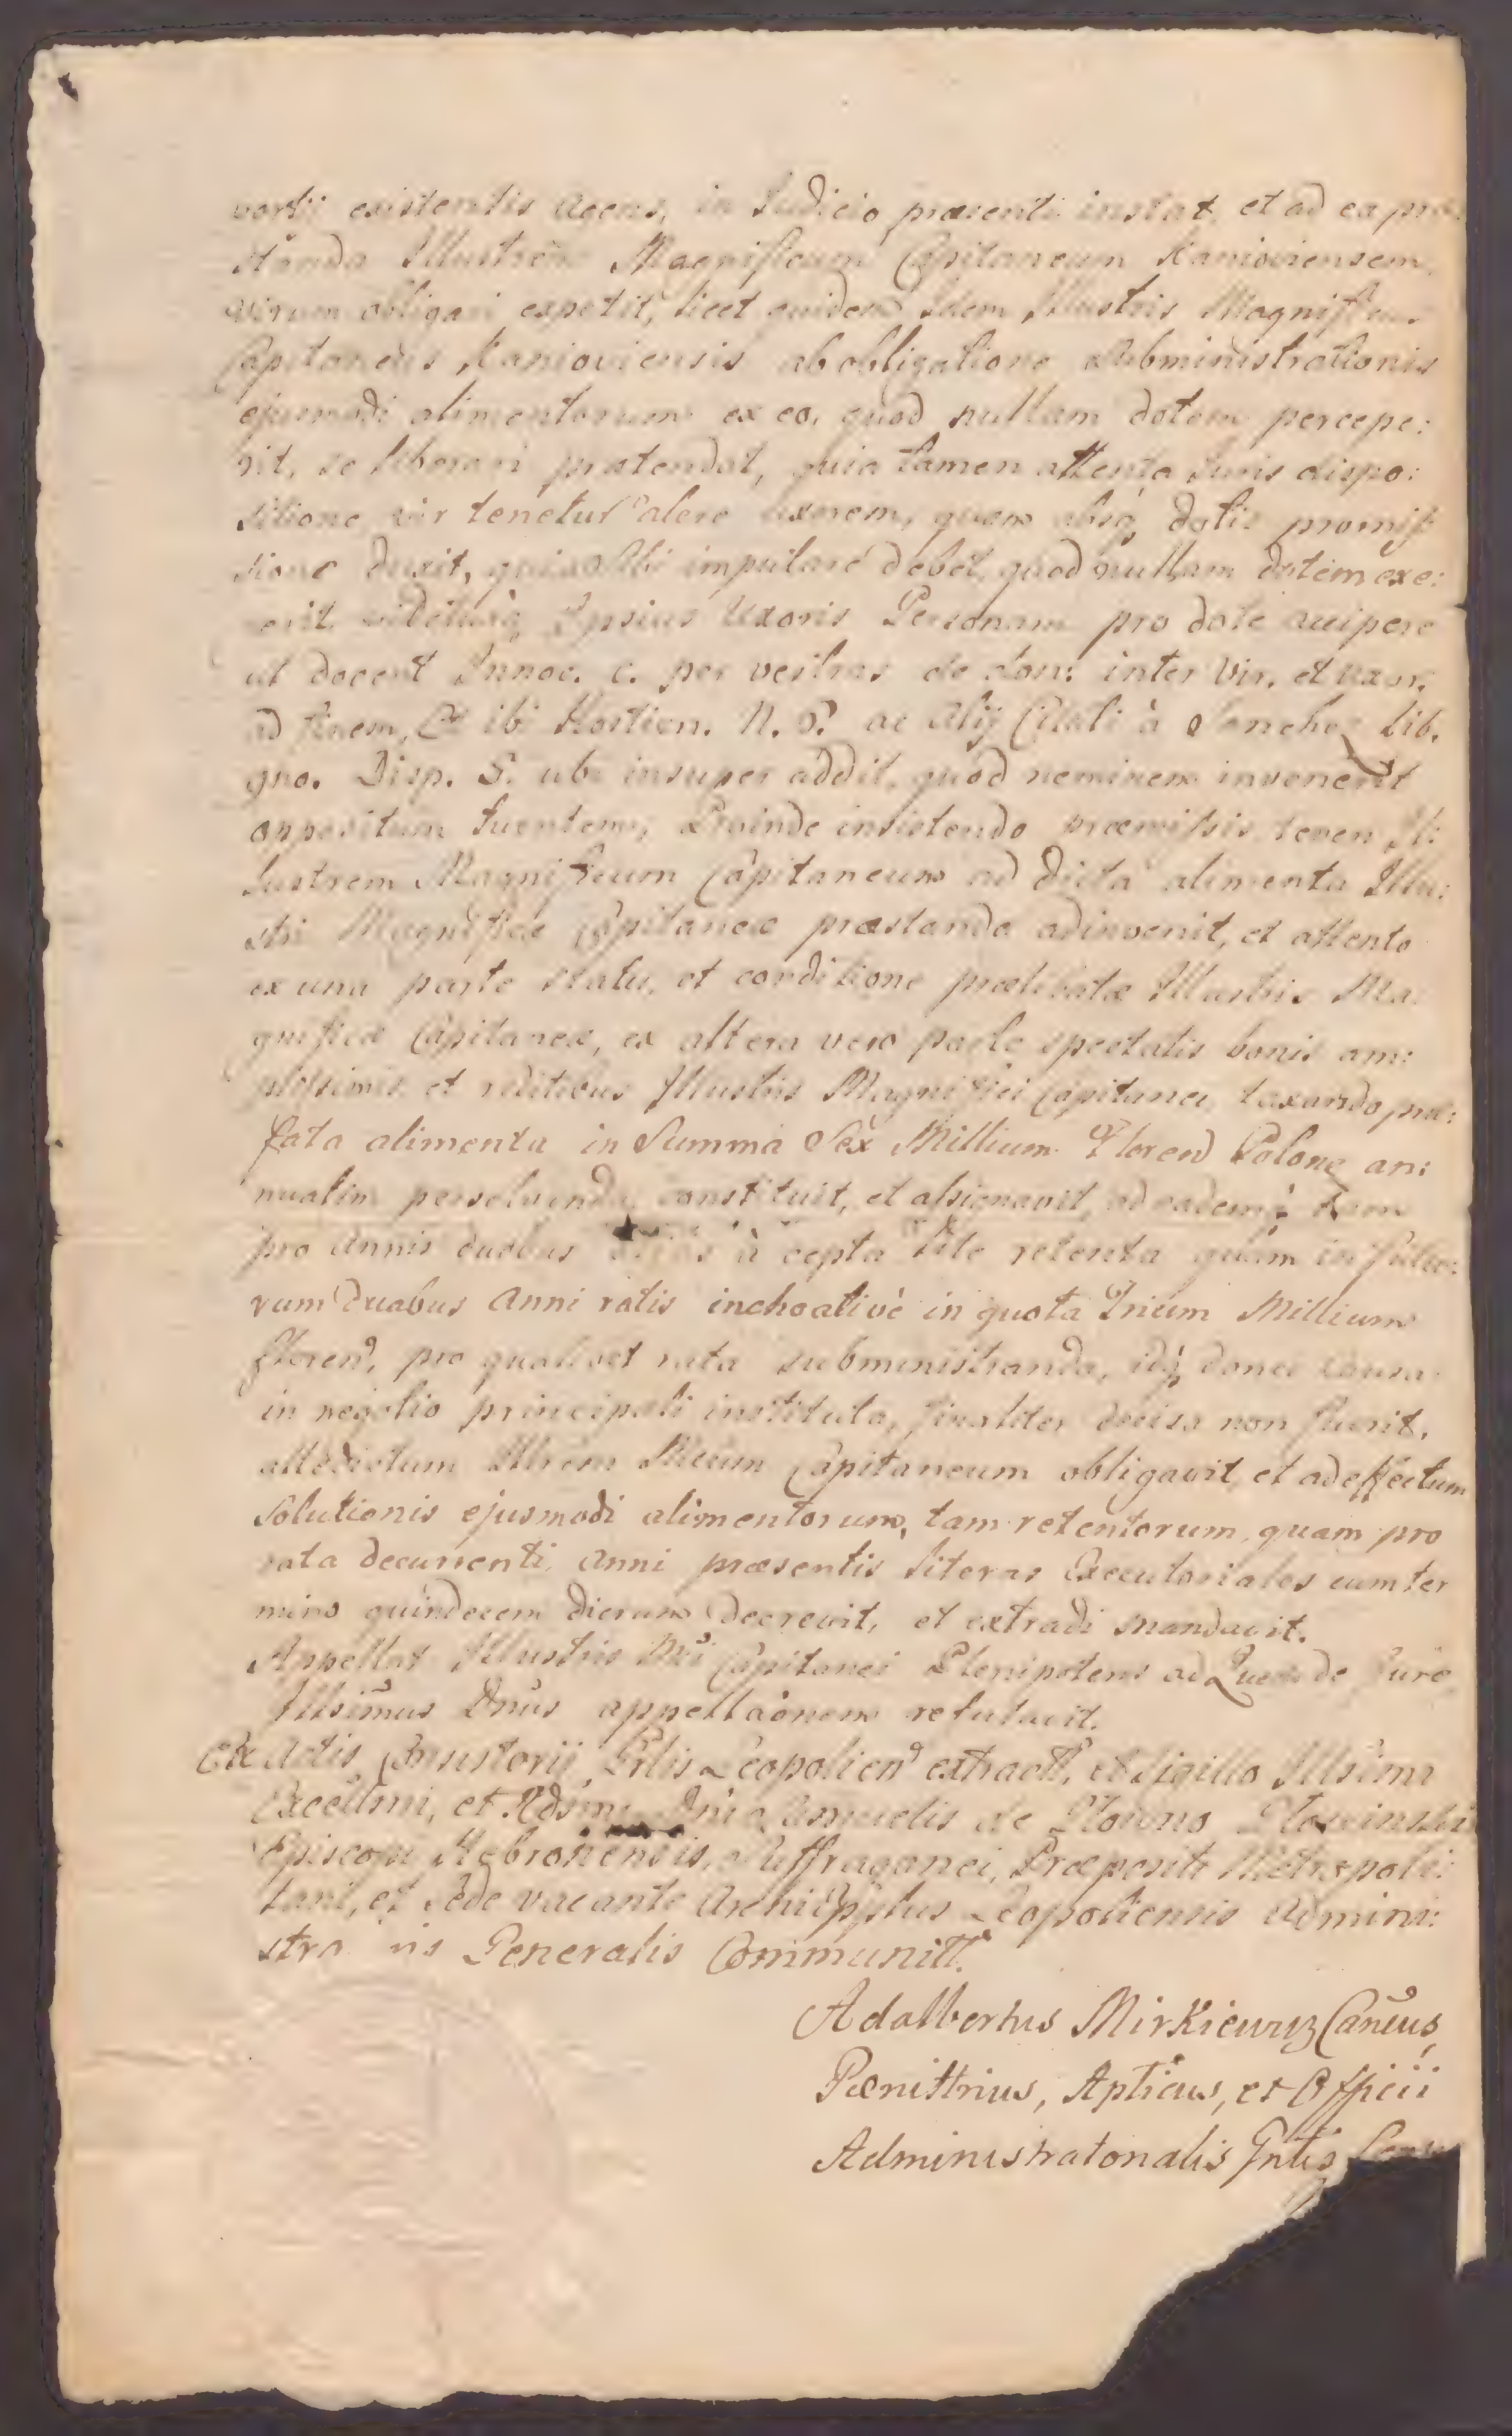 vortii existentis agens, in Judicio præsenti instat, et ad ea præ:
standa Illustrem Magnificum Capitaneum Kanioviensem
virum obligari expetit, licet quidem Idem Illustris Magnificus
Capitaneus Kanioviensis ab obligatione subministrationis
ejusmodi alimentorum ex eo, quod nullam dotem percepe:
rit, se liberari prætendat, quia tamen attenta Juris dispo:
sitione vir tenetur alere uxorem, quam absq dotis promis
sione duxit, quia sibi imputare debet, quod nullam dotem exe:
gerit videturq Ipsius Uxoris Personam pro dote accipere
ut docent Innoc. c. per vestras de don: inter Vir. et uxor.
ad finem, et ibi Hostien. N. 5. ac Alij Citati à Sanchez Lib.
gno. Disp. 5. ubi insuper addit, quod neminem invenerit
oppositum tuentem, Proinde insistendo præmissis teneri Il:
lustrem Magnificum Capitaneum ad dicta alimenta Illu:
stri Magnificæ Capitaneæ præstanda adinvenit, et attento
ex una parte statu, et conditione prælibatæ Illustris Ma:
gnificæ Capitaneæ, ex altera vero parte spectatis bonis am:
plissimis et reditibus Illustris Magnifici Capitanei, taxando præ:
fata alimenta in Summa Sex Millium Floren Polon an:
nuatim persolvenda constituit, et assignavit, ad eademq tam
pro Annis duobus à cepta lite retenta quàm in futu:
rum duabus Anni ratis inchoativè in quota Trium Millium
floren, pro qualibet rata subministranda, idq donec causa
in negotio principali instituta, finaliter decisa non fuerit,
attedictum Illrem Mcum Capitaneum obligavit, et ad effectum
Solutionis ejusmodi alimentorum, tam retentorum, quam pro
rata decurrenti Anni præsentis literas Executoriales cum ter
mino quindecem dierum decrevit, et extradi mandavit.
Appellat Illustris Mci Capitanei Plenipotens ad Quem de Jure
Illsimus Dnus appellaonem refutavit.
Ex Actis Consistorij Grlis Leopolien extract, et Sigillo Illsimi
Excellmi, et Rdsimi Dni Samuelis de Głowno Głowinski
Episcopi Hebronensis, Suffraganei, Præpositi Metropoli:
tani, et Sede vacante Archiepptus Leopoliensis Admini:
stra is Generalis Communitt.
Adalbertus Mirkiewicz Cancus,
Pœnittrius, Apticus, et Officii
Administratorialis Gnlis